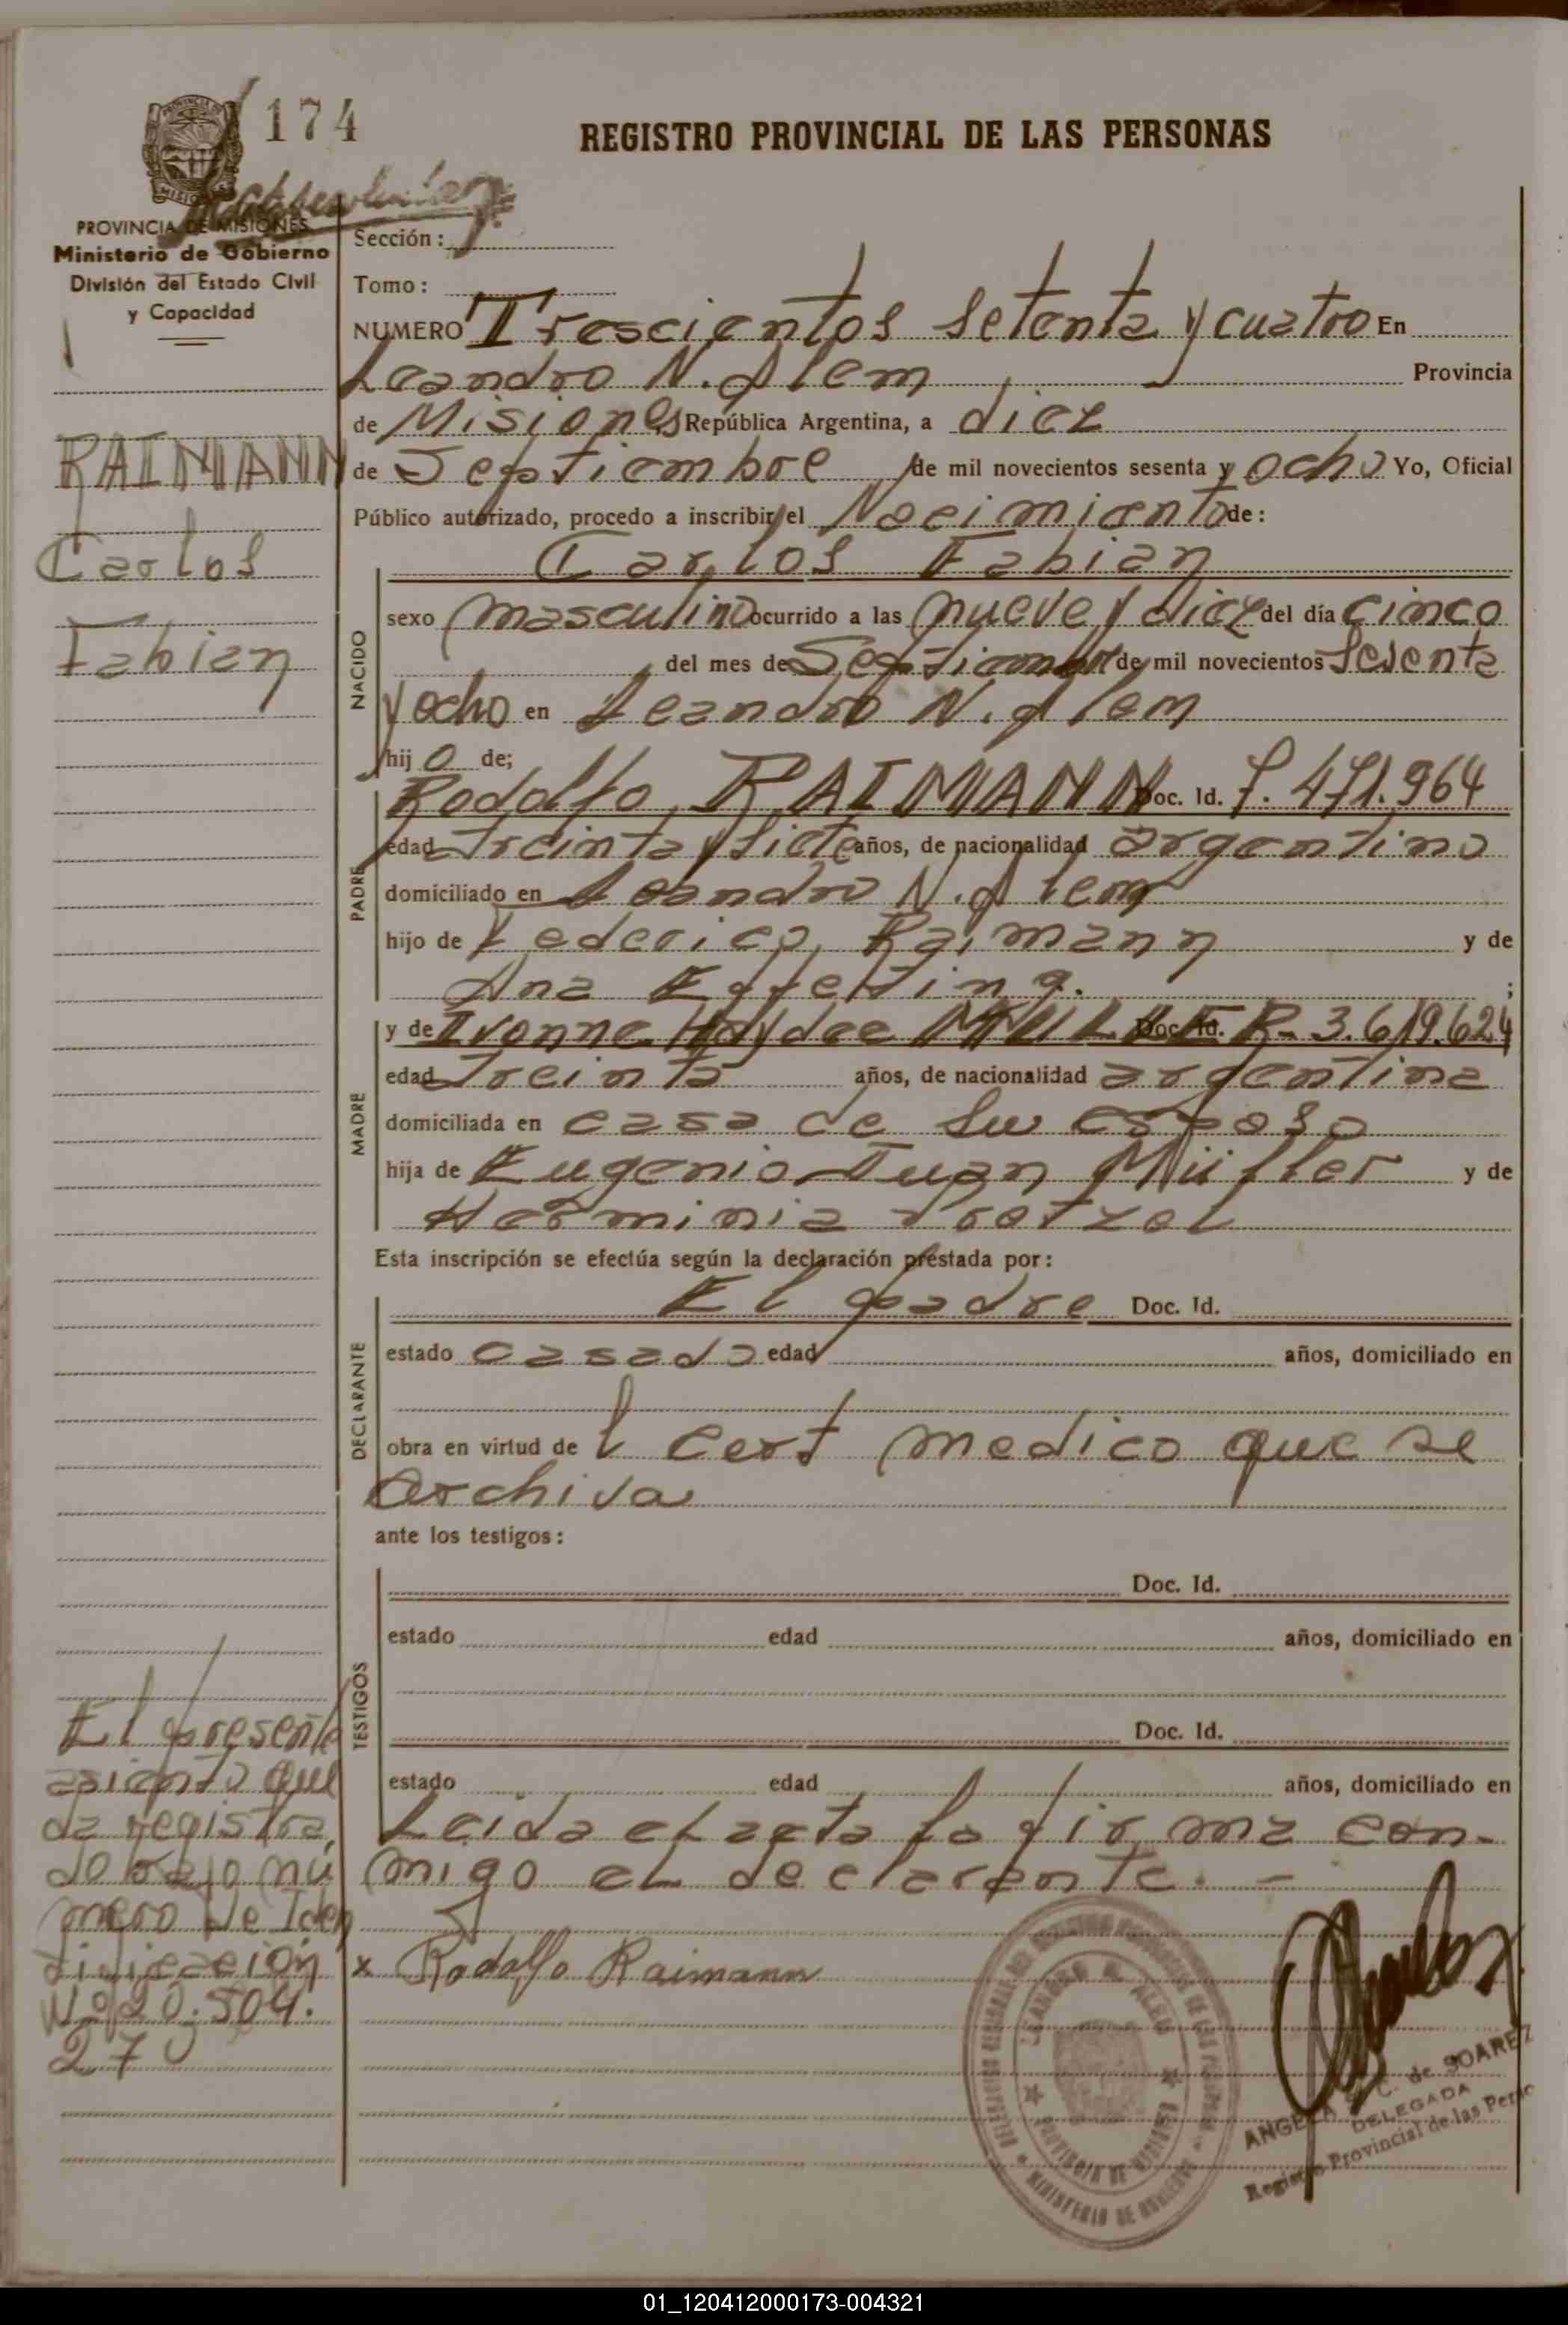 174
REGISTRO PROVINCIAL DE LAS PERSONAS
PROVINCIA DE MISIONES
Ministerio de Gobierno
División del Estado Civil
y Capacidad
Sección:
Tomo:
NUMERO Trescientos setenta y cuatro En
Leandro N. Alem Provincia
de Misiones República Argentina, a diez
de Septiembre de mil novecientos sesenta y ocho Yo, Oficial
Público autorizado, procedo a inscribir el Nacimiento de:
Carlos Fabian
RAIMANN
Carlos
Fabian
NACIDO
sexo masculino ocurrido a las nueve y diez del día cinco
del mes de Septiembre de mil novecientos sesenta
y ocho en Leandro N. Alem
hij o de;
PADRE
Rodolfo RAIMANN Doc. Id. 7.471.964
edad treinta y siete años, de nacionalidad argentino
domiciliado en Leandro N. Alem
hijo de Federico Raimann y de
Ana ;
MADRE
y de Ivonne Haydee Doc. Id. R- 3.619.624
edad treinta años, de nacionalidad argentina
domiciliada en casa de su esposo
hija de Eugenio Juan Müller y de
Herminia
Esta inscripción se efectúa según la declaración prestada por:
DECLARANTE
El padre Doc. Id.
estado casado edad años, domiciliado en
obra en virtud de l cert medico que se
archiva
ante los testigos:
TESTIGOS
Doc. Id.
estado edad años, domiciliado en
Doc. Id.
estado edad años, domiciliado en
Leida el acta la firma con-
migo el declarante. -
x Rodolfo Raimann
El presente
asiento que
da registra
do bajo nú
mero de Iden
tificación
Nº 20.504.
270
LEANDRO N. ALEM
PROVINCIA DE MISIONES
MINISTERIO DE GOBIERNO
ANGELA C. de SOAREZ
DELEGADA
Registro Provincial de las Perso
01_120412000173-004321